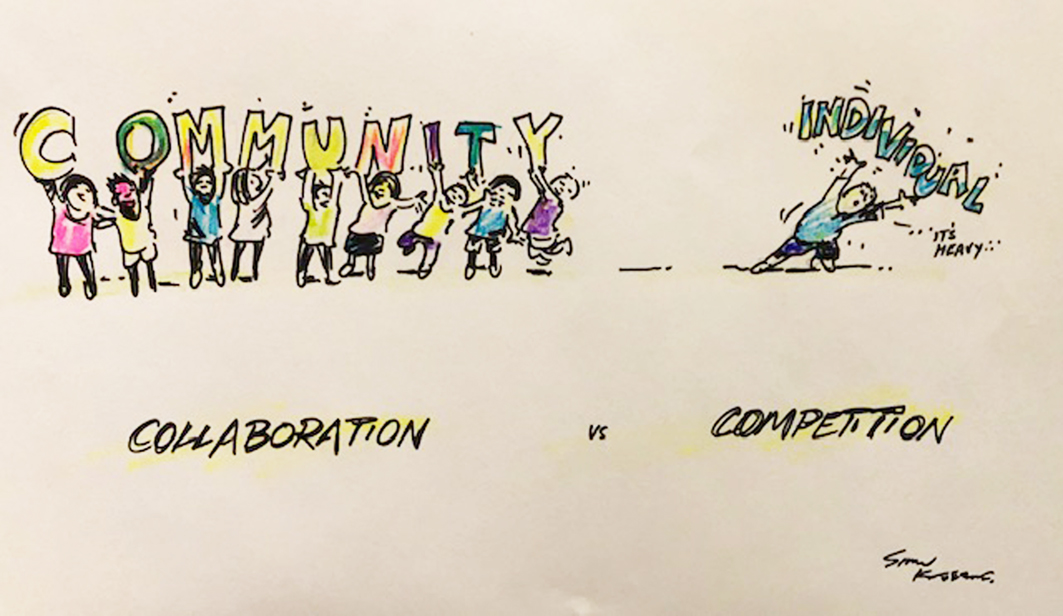 COMMUNITY
INDIVIDUAL
IT'S
HEAVY...
COLLABORATION vs COMPETITION